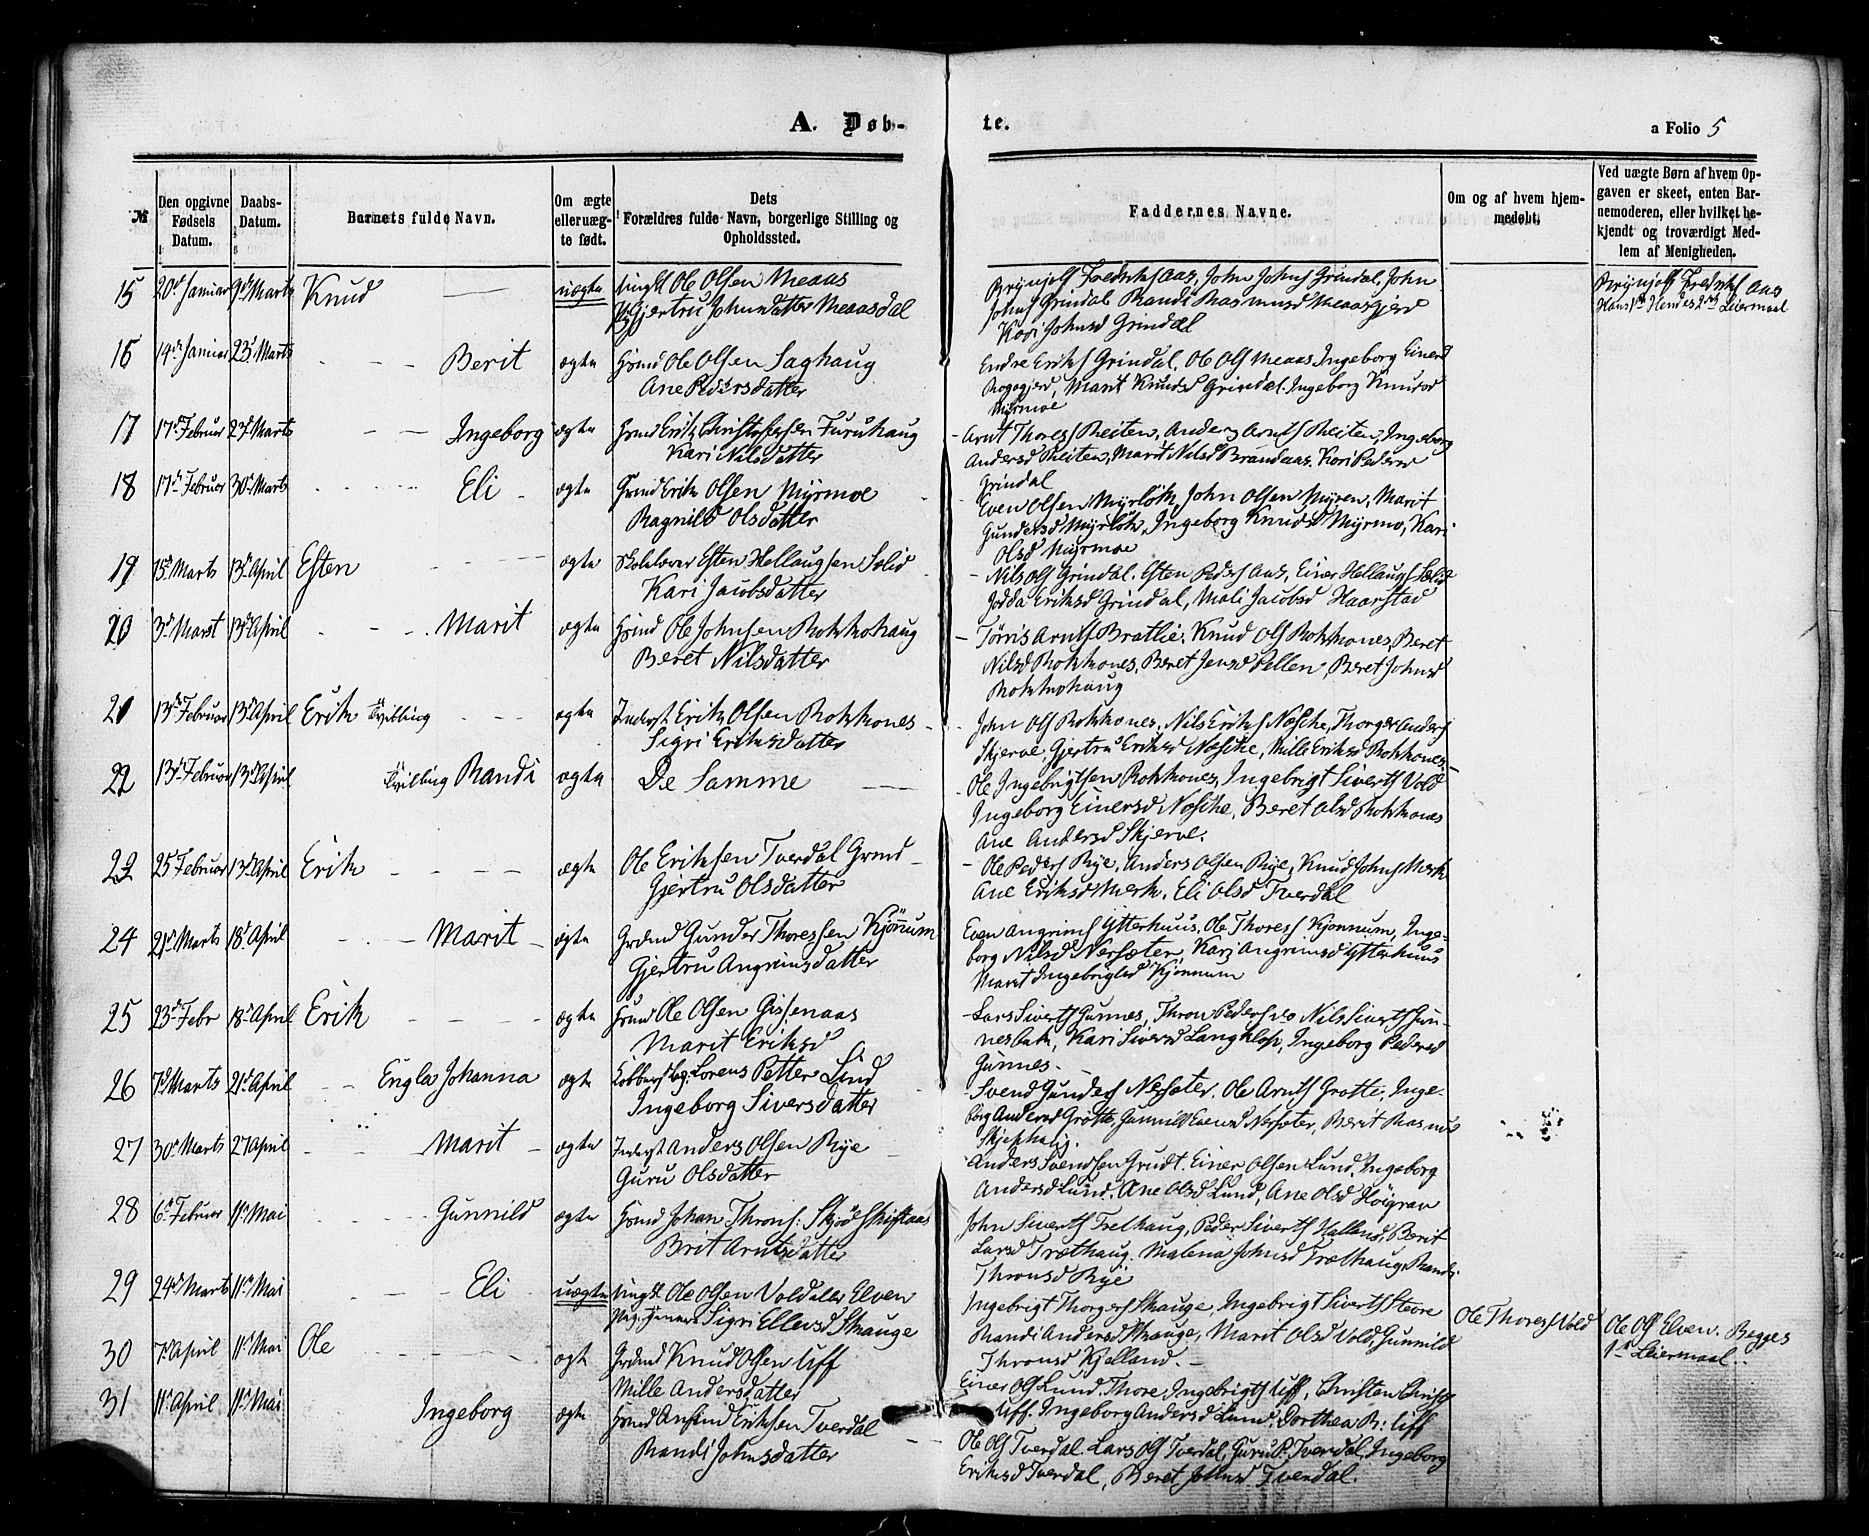 A. Døb-
te.
a Folio 5
№
Den opgivne Fødsels Datum.
Daabs-Datum.
Barnets fulde Navn.
Om ægte eller uæg-te født.
Dets Forældres fulde Navn, borgerlige Stilling og Opholdssted.
Faddernes Navne.
Om og af hvem hjem-medøbt.
Ved uægte Børn af hvem Op-gaven er skeet, enten Bar-nemoderen, eller hvilket be-kjendt og troværdigt Med-lem af Menigheden.
15 20d Januar 9d Marts Knud uægte Ungk Ole Olsen Meaas
Gjertru Johnsdatter Meaasdal
Brynjolf Fredrikss Aas, John Johns Grindal, John
Johns Grindal Randi Rasmusd Meaasgjerd
Kari Johnsd Grindal
Brynjolf Fredrikss Aas
Hans 1ste Hendes 2det Leiermaal
16 14de Januar 23d Marts Berit ægte Grmd Ole Olsen Saghaug
Ane Pedersdatter
Endre Eriks Grindal, Ole Ols Meaas Ingeborg Einersd
Marit Knudsd Grindal. Ingeborg Knudsd
Myrmoe
17 17d Februar 23d Marts Ingeborg ægte Grmd Erik Christophersen Furuhaug
Kari Nilsdatter
Arnt Thoress Reiten, Anders Arnts Reiten, Ingeborg
Andersd Reiten, Marit Nilsd Brandaas. Kari Pedersd
Grindal
18 17d Februar 30d Marts Eli ægte Grmd Erik Olsen Myrmoe
Ragnild Olsdatter
Even Olsen Myrløk, John Olsen Myren, Marit
Gundersd Myrløk, Ingeborg Knudsd Myrmo, Kari
Olsd Myrmoe
19 15d Marts 13d April Esten ægte Skolelærer Esten Hellaugsen Sælid
Kari Jacobsdatter
Nils Ols Grindal. Esten Peders Aas, Einer Hellaugs Sælid
Jodda Eriksd Grindal, Mali Jacobsd Haarstad
20 3d Marst 13d April Marit ægte Grmd Ole Johnsen Rokkohaug
Beret Nilsdatter
Tørris Arnts Bratlie. Knud Ols Rokkones, Beret
Nilsd Rokkones, Beret Jensd Pellen, Beret Johnsd
Rokkohaug
21 13d Februar 13d April Erik Tvilling ægte Inderst Erik Olsen Rokkones
Sigri Eriksdatter
John Ols Rokkones, Nils Eriks Næsche, Thorger Anders
Skjerve, Gjertru Eriksd Næsche, Mille Eriksd Rokkones
22 13d Februar 13d April Tvilling Randi ægte De Samme
Ole Ingebrigtsen Rokkones, Ingebrigt Siverts Vold
Ingeborg Einersd Næsche, Beret Olsd Rokkones
Ane Andersd Skjerve.
23 25 Februar 13d April Erik ægte Ole Eriksen Tverdal Grmd
Gjertru Olsdatter
Ole Peders Rye, Anders Olsen Rye, Knud Johns Merk
Ane Eriksd Merk, Eli Olsd Tverdal
24 21d Marts 18d April Marit ægte Grdmd Gunder Thoressen Kjønnum
Gjertru Angrimsdatter
Even Angrims Ytterhuus, Ole Thoress Kjønnum, Inge-
borg Nilsd Nersæter, Kari Angrimsd Ytterhuus
Marit Ingebrigtsd Kjønnum
25 23d Febr 18d April Erik ægte Grmd Ole Olsen Gissenaas
Marit Eriksd
Lars Siverts Gunnes, Thron Peders do Nils Siverts Gun-
nesbak, Kari Siversd Langklop, Ingeborg Pedersd
Gunnes
26 7d Marts 21d April Engla Johanna ægte Lorens Petter Lind
Ingeborg Siversdatter
Svend Gunders Nersæter. Ole Arnts Grøtte, Inge-
borg Andersd Grøtte, Gunnild Evensd Nersæter, Berit Rasmus
27 30d Marts 27 April Marit ægte Inderst Anders Olsen Rye
Guru Olsdatter
Anders Svendsen Grudt. Einer Olsen Lund, Ingeborg
Andersd Lund. Ane Olsd Lund, Ane Olsd Høigrav
28 6d Februar 11d Mai Gunnild ægte Grmd Johan Throns: Skjødskiftaas
Brit Arntsdatter
John Siverts Trethaug, Peder Siverts Halland, Berit
Larsd Træthaug. Malena Johnsd Træthaug, Randi
Thronsd Rye
29 24d Marts 11d Mai Eli uægte Ungk Ole Olsen Vold eller Elven
Sigri Ellevsd Skauge
Ingebrigt Thorgers Skauge, Ingebrigt Siverts Stavre
Randi Andersd Skauge, Marit Olsd Vold, Gunnild
Thronsd Kjelland.
Ole Thoress Vold
Ole Ols Elven. Begges
1ste Leiermaal.
30 7d April 11d Mai Ole ægt Grdmd Knud Olsen Uff
Mille Andersdatter
Einer Ols Lund, Thore Ingebrigts Uff, Christen Christ
Uff. Ingeborg Andersd Lund, Dorthea R: Uff
31 11d April 11d Mai Ingeborg ægte Grmd Anfind Eriksen Tverdal
Randi Johnsdatter
Ole Ols Tverdal Lars Ols Tverdal, Guru P. Tverdal, Ingeborg
Eriksd Tverdal, Beret Johnsd Tverdal.